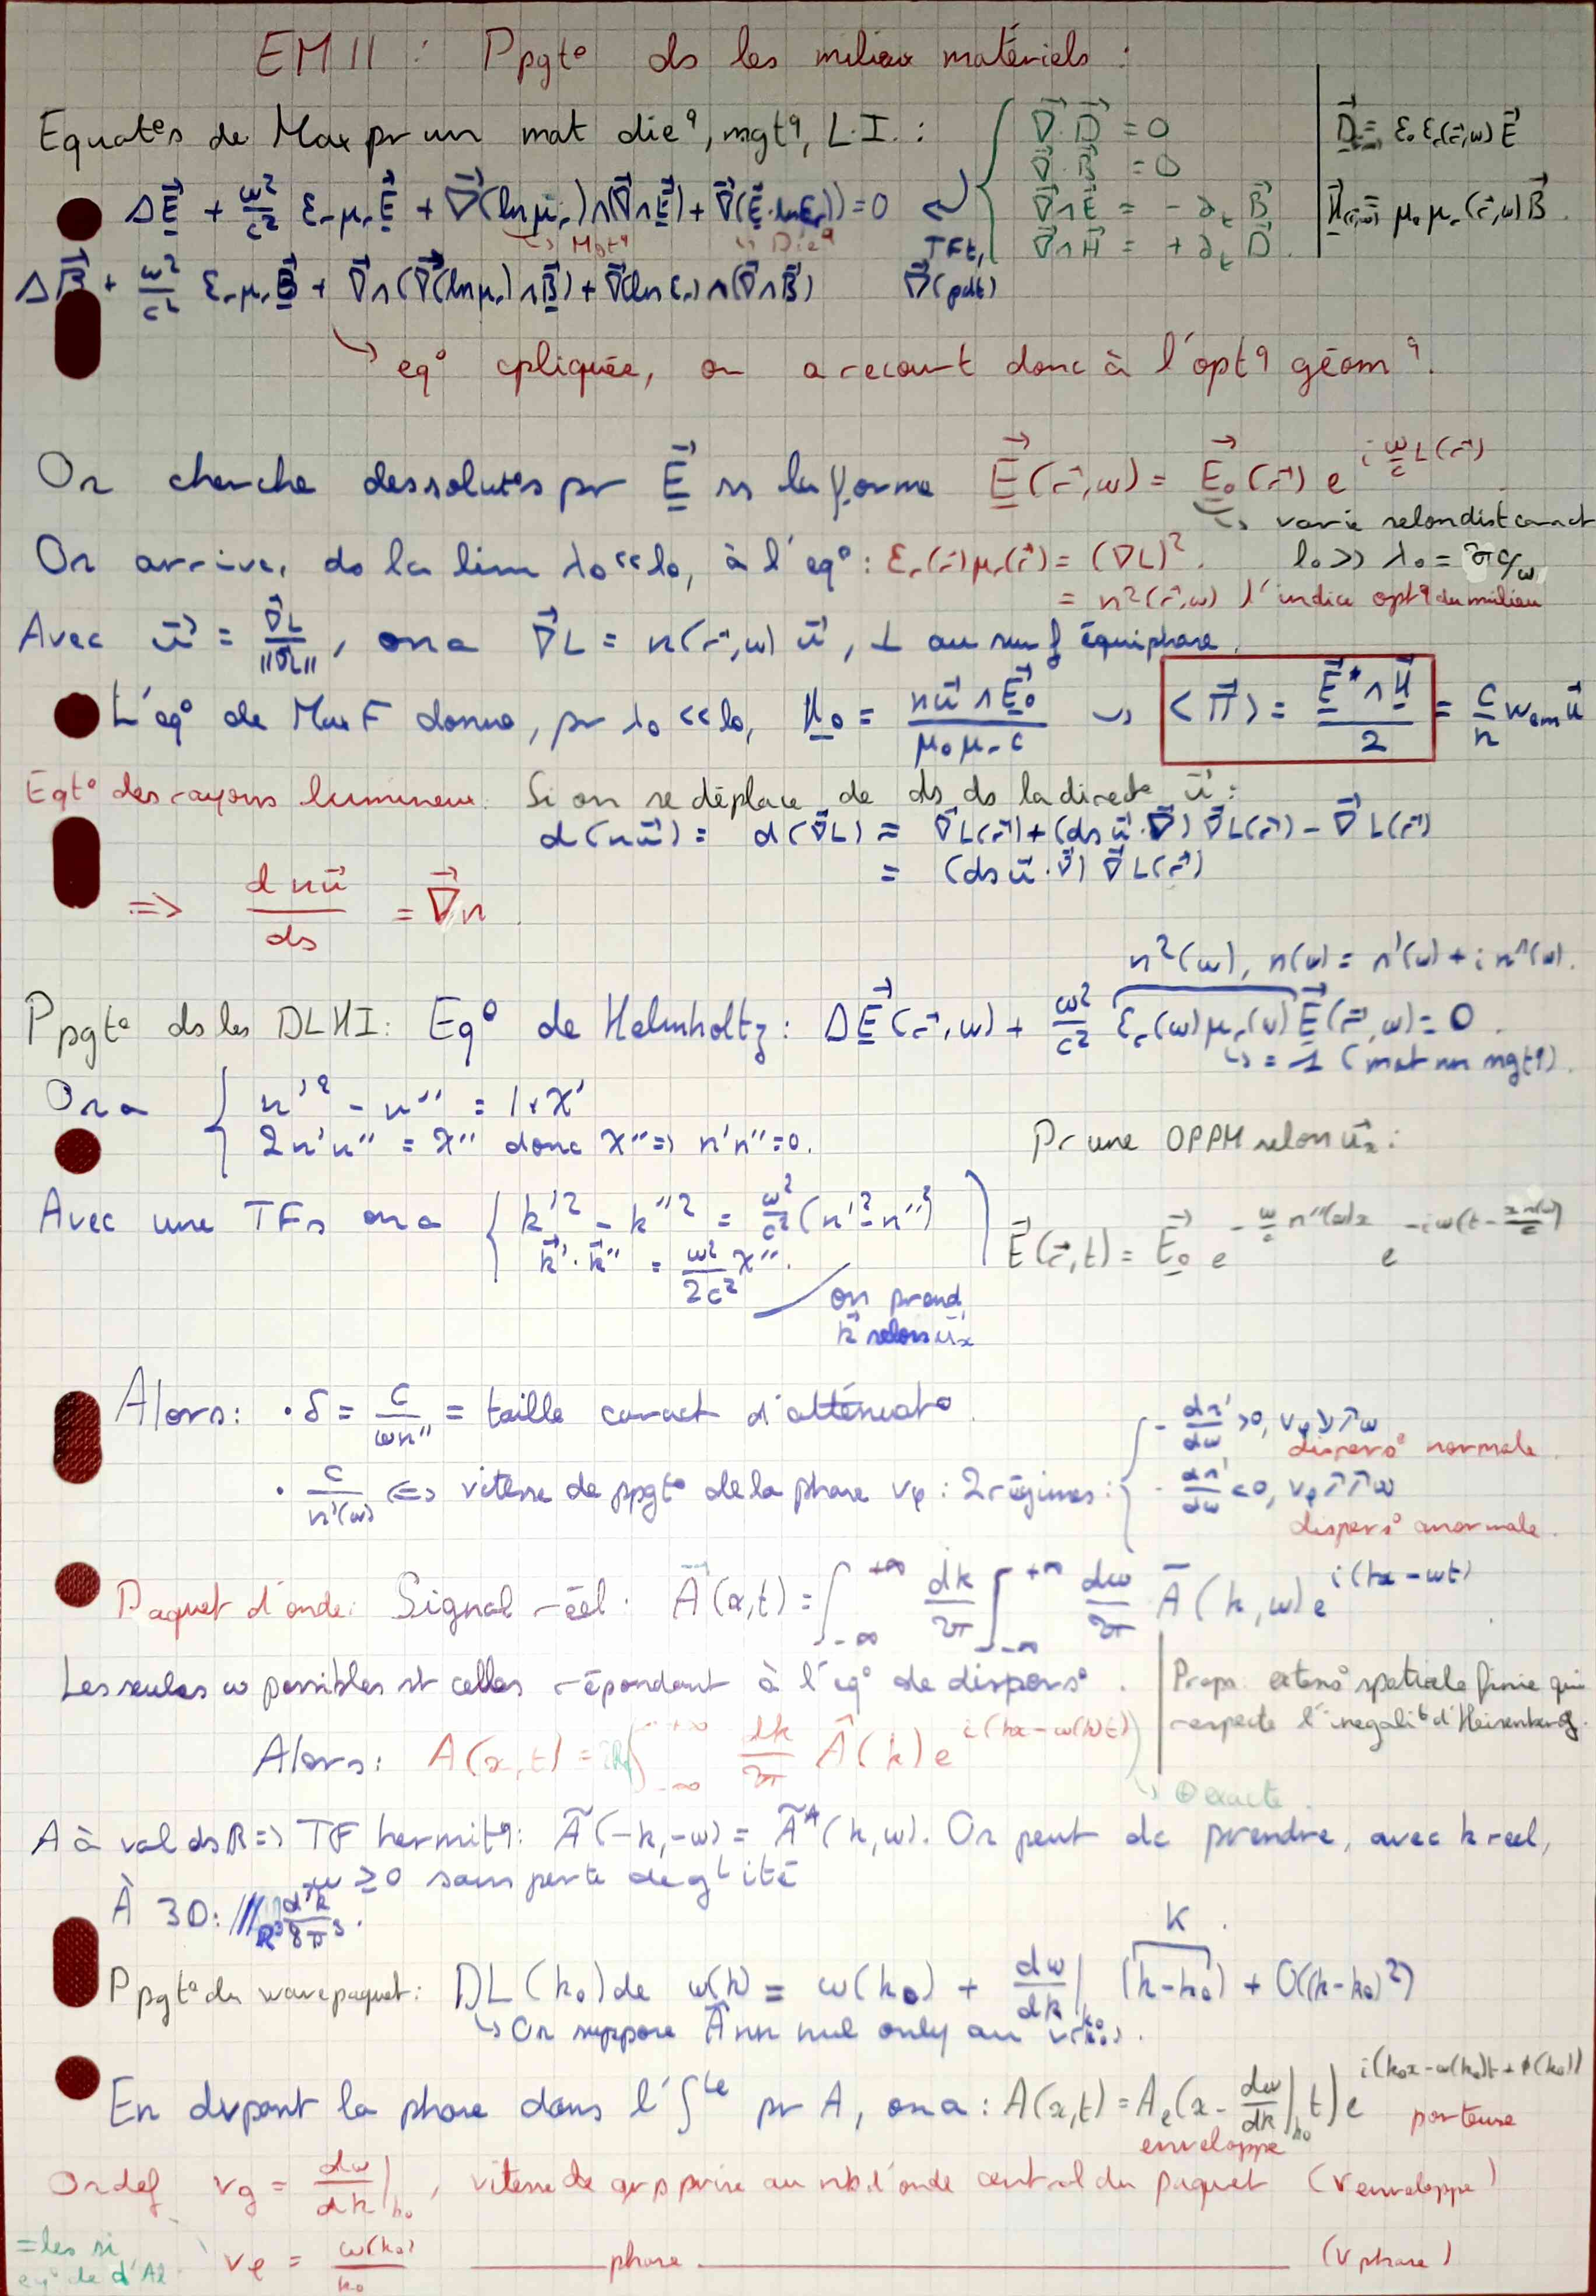 EM 11 : Ppgt° ds les milieux matériels :
Equat°s de Max pr un mat die^q, mgt^q, L.I. : { ∇⃗·D⃗ = 0 | D⃗ = ε₀ εr(r⃗,ω) E⃗
∇⃗·B⃗ = 0
ΔE⃗ + ω²/c² εr μr E⃗ + ∇⃗(ln μr)∧(∇⃗∧E⃗) + ∇⃗(E⃗·ln εr)) = 0 ∇⃗∧E⃗ = - ∂t B⃗ | H⃗(r⃗,ω) = μ₀ μr(r⃗,ω) B⃗.
↳ Mgt^q ↳ Die^q TFt, ∇⃗∧H⃗ = + ∂t D⃗
ΔB⃗ + ω²/c² εr μr B⃗ + ∇⃗∧(∇⃗(ln μr)∧B⃗) + ∇⃗(ln εr)∧(∇⃗∧B⃗) ∇⃗(pdt)
↳ eq° cpliquée, on a recourt donc à l'opt^q géom^q.
On cherche des solut°s pr E⃗ ss la forme E⃗(r⃗,ω) = E⃗₀(r⃗) e^{i ω/c L(r⃗)}
↳ varie selon dist caract
On arrive, ds la lim λ₀ << l₀, à l'eq° : εr(r⃗) μr(r⃗) = (∇L)². l₀ >> λ₀ = 2πc/ω
= n²(r⃗,ω) l'indice opt^q du milieu
Avec u⃗ = ∇⃗L/||∇⃗L||, on a ∇⃗L = n(r⃗,ω) u⃗, ⊥ au surf équiphase.
L'eq° de MaxF donne, pr λ₀ << l₀, H₀ = n u⃗ ∧ E⃗₀ / μ₀ μr c ↝ <Π⃗> = E⃗* ∧ H⃗ / 2 = c/n wem u⃗
Eqt° des rayons lumineux. Si on se déplace de ds ds la direct° u⃗ :
d(nu⃗) = d(∇⃗L) = ∇⃗L(r⃗) + (ds u⃗·∇⃗) ∇⃗L(r⃗) - ∇⃗L(r⃗)
= (ds u⃗·∇⃗) ∇⃗L(r⃗)
=> d nu⃗ / ds = ∇⃗n
n²(ω), n(ω) = n'(ω) + i n''(ω).
Ppgt° ds les DLHI : Eq° de Helmholtz : ΔE⃗(r⃗,ω) + ω²/c² εr(ω) μr(ω) E⃗(r⃗,ω) = 0.
↳ = 1 (mat nn mgt^q).
On a { n'² - n'' = 1 + χ'
2n'n'' = χ'' donc χ'' => n'n'' = 0. Pr une OPPM selon u⃗x :
Avec une TFs on a { k'² - k''² = ω²/c² (n'² - n''²)
k⃗'·k⃗'' = ω²/2c² χ''. E⃗(r⃗,t) = E⃗₀ e^{-ω/c n''(ω)x} e^{-iω(t - x n(ω)/c)}
on prend
k⃗ selon u⃗x
Alors : • δ = c/ωn'' = taille caract d'atténuat°.
- dn'/dω > 0, vφ ↘ ↗ω
dispers° normale.
• c/n'(ω) <=> vitesse de ppgt° de la phase vφ : 2 régimes : { - dn'/dω < 0, vφ ↗ ↗ω
dispers° anormale.
Paquet d'onde : Signal réel : A(x,t) = ∫_{-∞}^{+∞} dk/2π ∫_{-∞}^{+∞} dω/2π A(k,ω) e^{i(kx-ωt)}
Les seules ω possibles st celles répondant à l'eq° de dispers°. | Propr. extens° spatiale finie qui
respecte l'inegalité d'Heisenberg.
Alors : A(x,t) = ∫_{-∞}^{+∞} dk/2π Â(k) e^{i(kx-ω(k)t)}
↳ ⊕ exacte.
A à val ds R => TF hermit^q : Ã(-k,-ω) = Ã*(k,ω). On peut dc prendre, avec k réel,
ω ≥ 0 sans perte de g^l ité
À 3D : ∭_{R³} d³k/8π³.
Ppgt° du wave paquet : DL(k₀) de ω(k) = ω(k₀) + dω/dk|k₀ (k-k₀) + O((k-k₀)²)
K
↳ On suppose Â nn nul only au v(k₀).
En dvpant la phase dans l'∫^le pr A, on a : A(x,t) = Ae(x - dω/dk|k₀ t) e^{i(k₀x-ω(k₀)t+φ(k₀))}
enveloppe porteuse
On def vg = dω/dk|k₀, vitesse de grp prise au nb d'onde central du paquet (v enveloppe)
=les si
eq° de d'Al vφ = ω(k₀)/k₀ ——— phase ——————— (v phase)